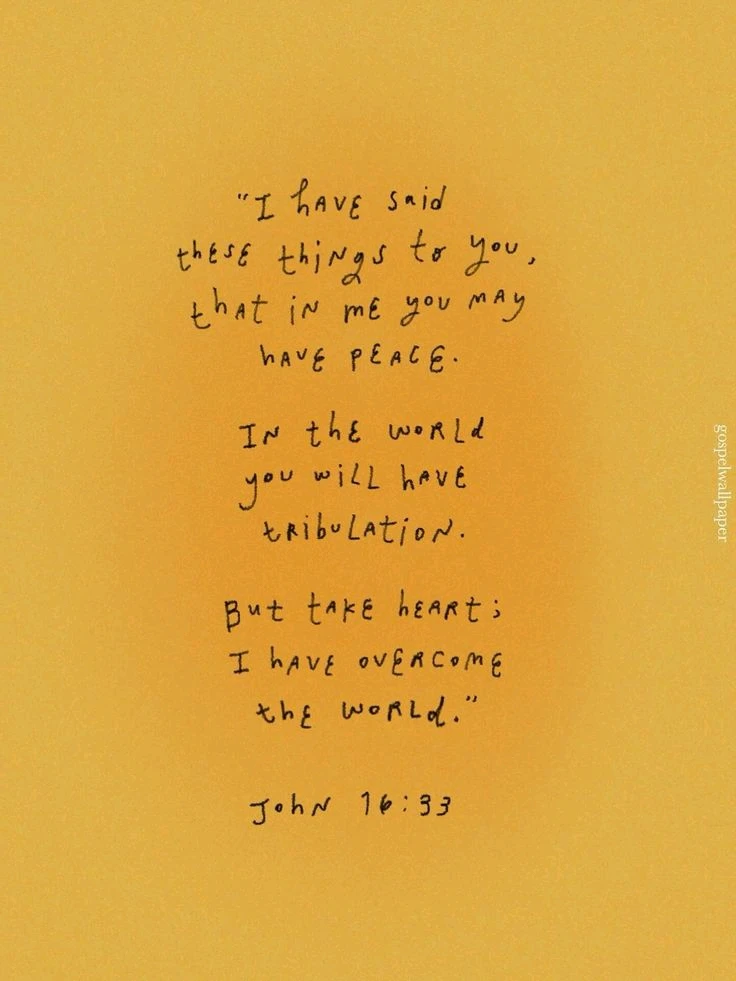 "I have said
these things to you,
that in me you may
have peace.
In the world
you will have
tribulation.
But take heart;
I have overcome
the world."
John 16:33
gospelwallpaper